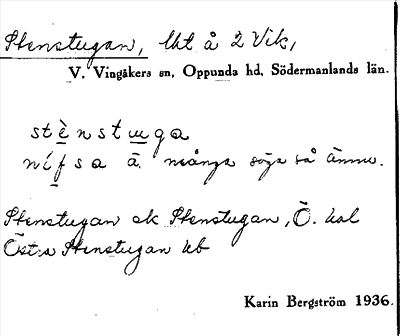 Stenstugan, lht å 2 Vik,
V. Vingåkers sn, Oppunda hd, Södermanlands län.
stènstuga
många säga så ännu.
Stenstugan ek Stenstugan, Ö. hal
Östra Stenstugan kb
Karin Bergström 1936.